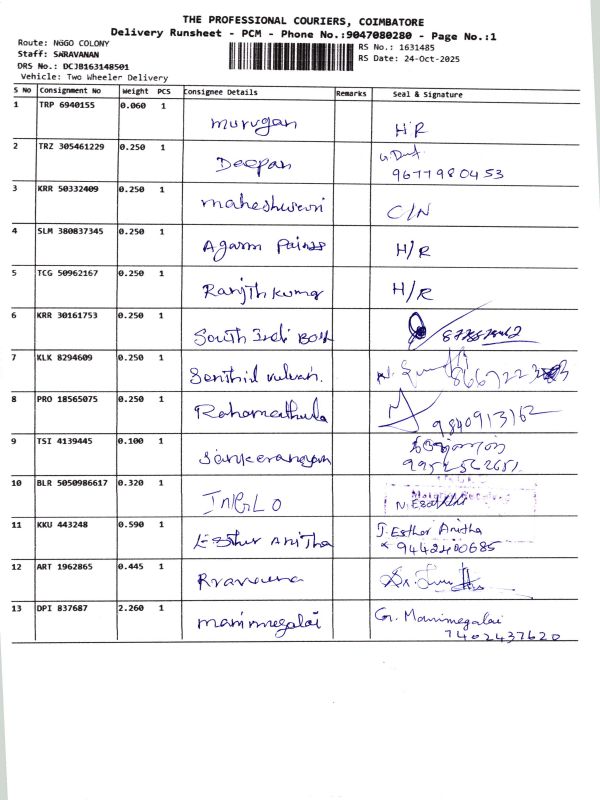 THE PROFESSIONAL COURIERS, COIMBATORE
Delivery Runsheet - PCM - Phone No.:9047080280 - Page No.:1
Route: NGGO COLONY
Staff: SARAVANAN
DRS No.: DCJB163148501
Vehicle: Two Wheeler Delivery
RS No.: 1631485
RS Date: 24-Oct-2025
S No Consignment No Weight PCS Consignee Details Remarks Seal & Signature
1 TRP 6940155 0.060 1 Murugan H/R
2 TRZ 305461229 0.250 1 Deepan
9677980453
3 KRR 50332409 0.250 1 Maheshweri C/N
4 SLM 380837345 0.250 1 Agarm Painss H/R
5 TCG 50962167 0.250 1 Ranjth kumar H/R
6 KRR 30161753 0.250 1 South Indi Bank
7 KLK 8294609 0.250 1 Senthil vulvan.
8 PRO 18565075 0.250 1 Rahamathula 9840913162
9 TSI 4139445 0.100 1 Sankeranayan
10 BLR 5050986617 0.320 1
11 KKU 443248 0.590 1 Esther Anitha J. Esther Anitha
9442400685
12 ART 1962865 0.445 1
13 DPI 837687 2.260 1 manimegalai G. Manimegalai
7402437620